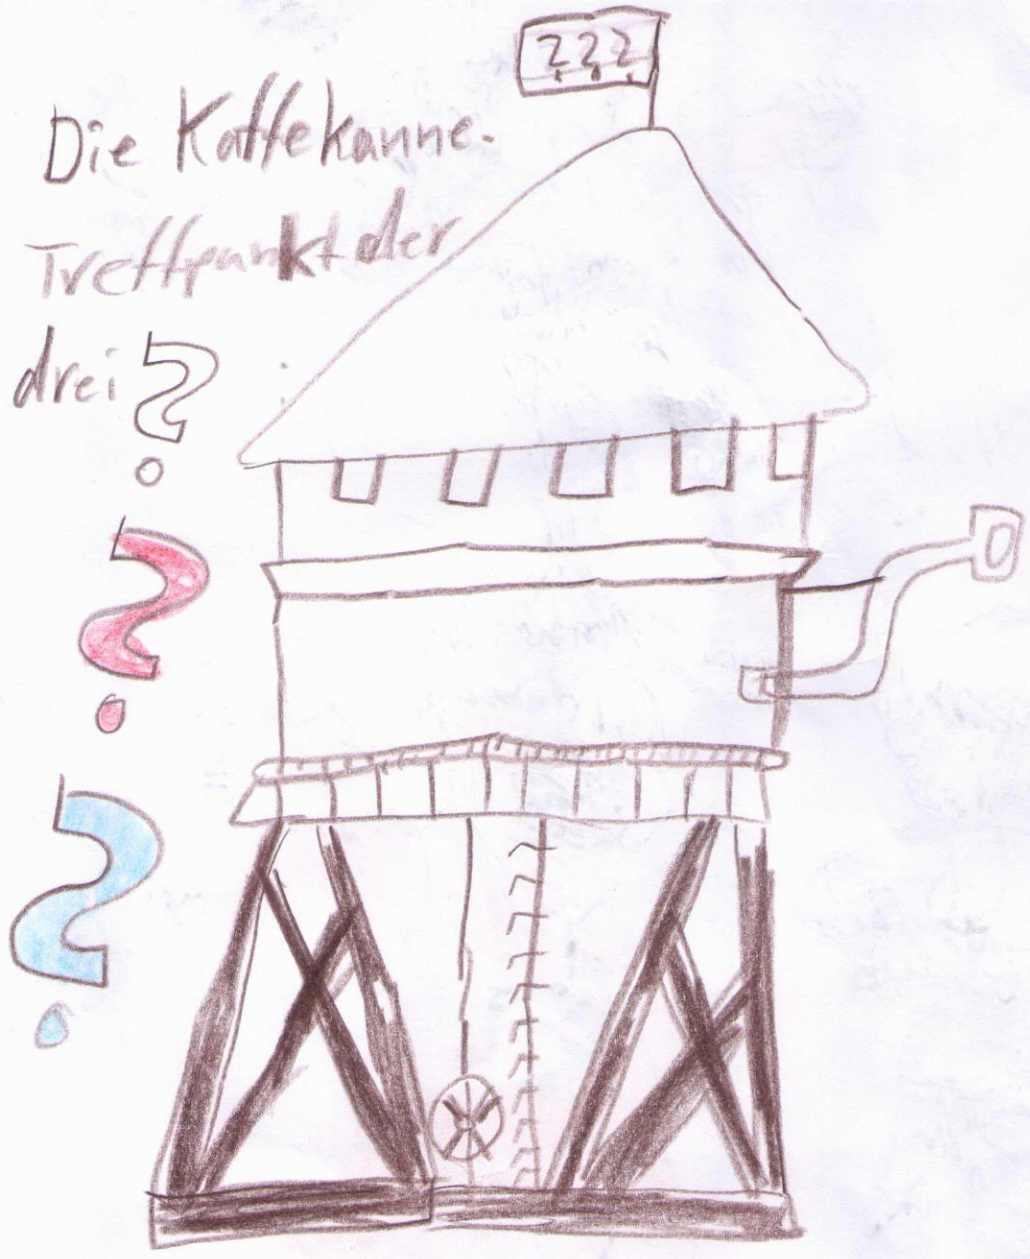 ???
Die Kaffekanne.
Treffpunkt der
drei ?
?
?